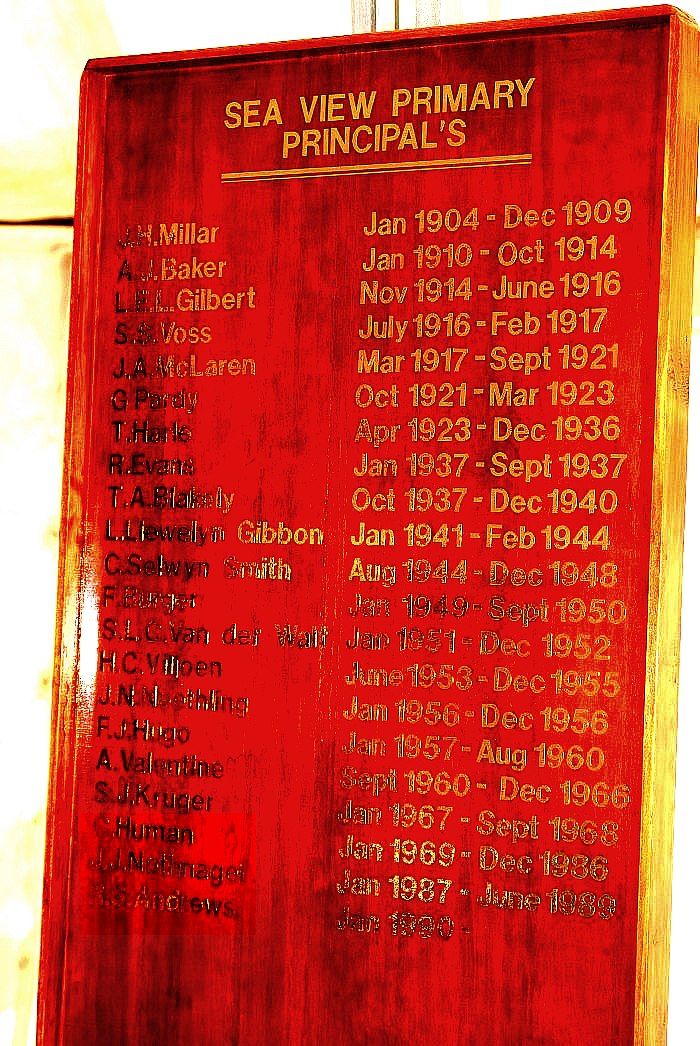 SEA VIEW PRIMARY
PRINCIPAL'S
J.H.Millar Jan 1904 - Dec 1909
A.J.Baker Jan 1910 - Oct 1914
L.E.L.Gilbert Nov 1914 - June 1916
S.S.Voss July 1916 - Feb 1917
J.A.McLaren Mar 1917 - Sept 1921
G Pardy Oct 1921 - Mar 1923
T.Harle Apr 1923 - Dec 1936
R.Evans Jan 1937 - Sept 1937
T.A.Blakely Oct 1937 - Dec 1940
L.Llewelyn Gibbon Jan 1941 - Feb 1944
C.Selwyn Smith Aug 1944 - Dec 1948
F.Burger Jan 1949 - Sept 1950
S.L.C.Van der Walt Jan 1951 - Dec 1952
H.C.Viljoen June 1953 - Dec 1955
J.N.Noethling Jan 1956 - Dec 1956
F.J.Hugo Jan 1957 - Aug 1960
A.Valentine Sept 1960 - Dec 1966
S.J.Kruger Jan 1967 - Sept 1968
C.Human Jan 1969 - Dec 1986
J.J.Nothnagel Jan 1987 - June 1989
Andrews Jan 1990 -